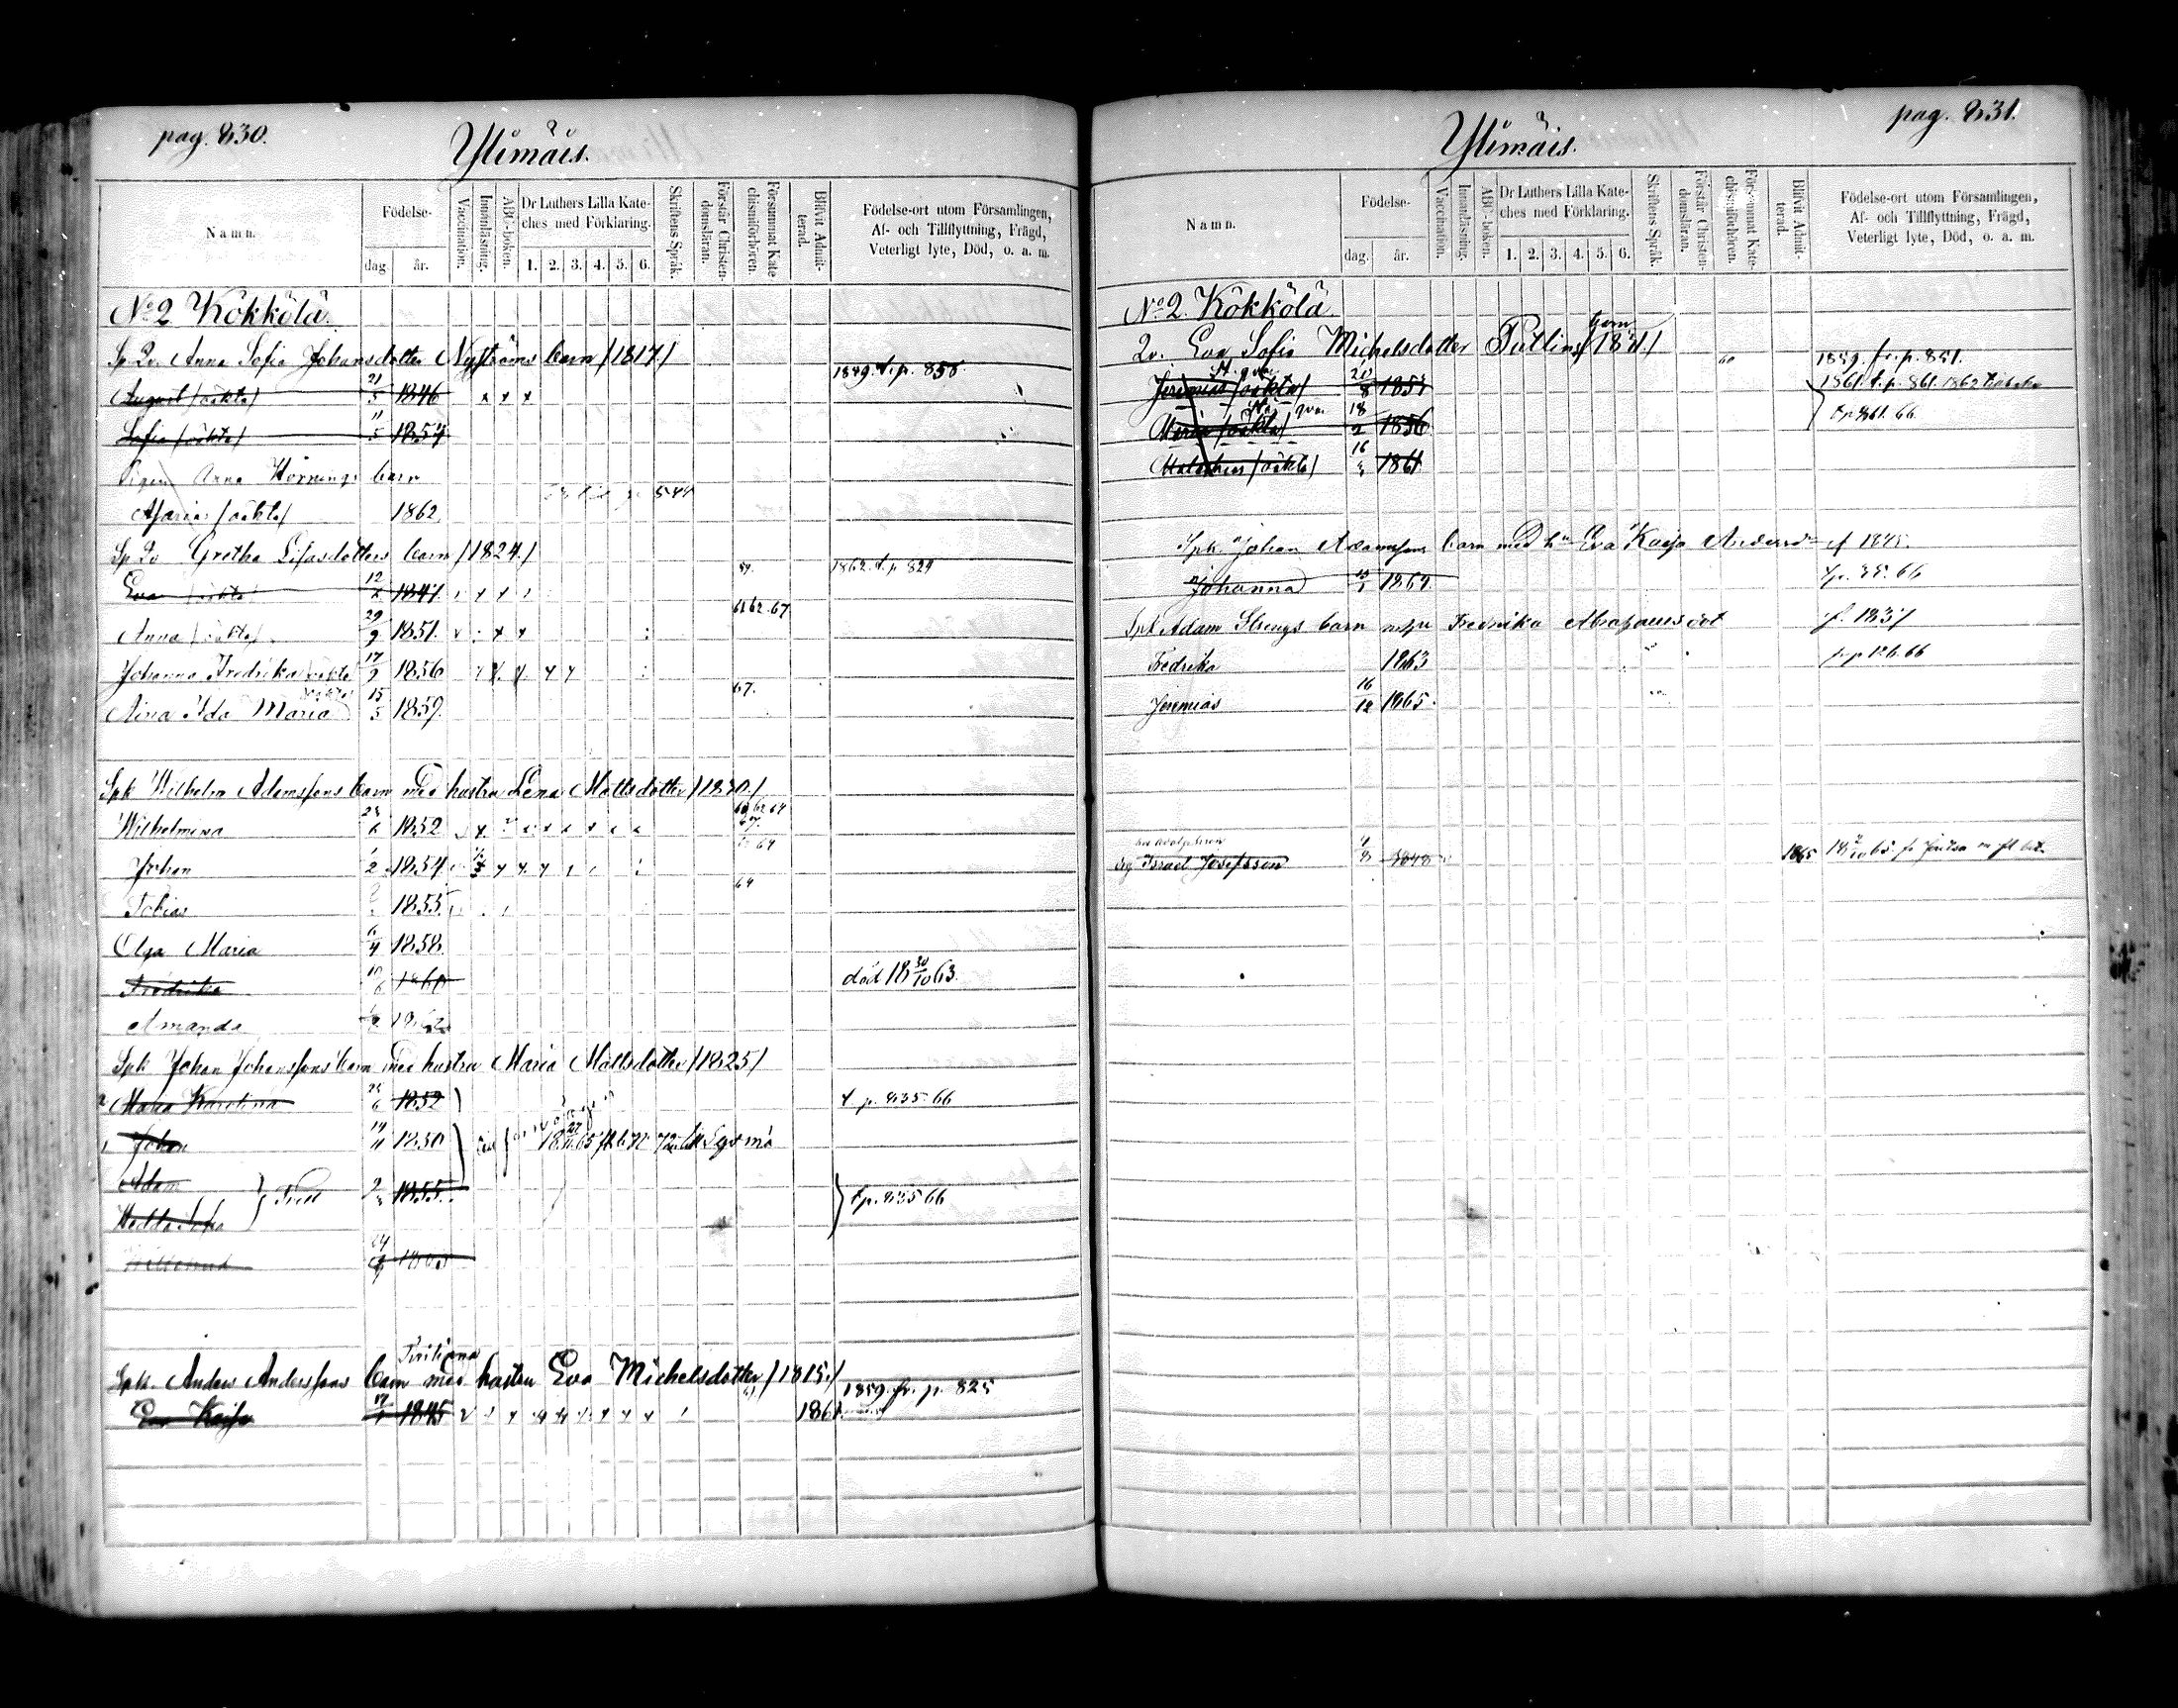 pag. 830.
Ylimäis.
Namn.
Födelse-
dag.
år.
Vaccination.
Innanläsning.
ABC-boken.
Dr Luthers Lilla Kate-
ches med Förklaring.
1. 2. 3. 4. 5. 6.
Skriftens Språk.
Förstår Christen-
domsläran.
Försummat Kate-
chismiförhören.
Blifvit Admit-
terad.
Födelse-ort utom Församlingen,
Af- och Tillflyttning, Frägd,
Veterligt lyte, Död, o. a. m.
No 2 Kökkölä.
Sp Qv. Anna Sofia Johansdotter Nyströms barn /1817/ 1849. t. p. 858.
August /oäkta/ 21/5 1846 x x x
Sofia /oäkta/ 11/5 1854
Pigan Anna Hornings barn
Maria /oäkta/ 1862
Sp Qv Gretha Lisasdotters barn /1824/ 1862. t. p 829
Eva /oäkta/ 12 1847.
Anna /oäkta/ 29/9 1851. 61 62. 67.
Johanna Fredrika /oäkta/ 17/9 1856
Aina Ida Maria /oäkta/ 15/5 1859. 67.
Spk Wilhelm Adamssons barn med hustru Lena Mattsdotter /1830/
Wilhelmina 6 1852
Johan 1/2 1854
Tobias 1855 64
Olga Maria 6/4 1858.
Fredrika 10/6 1860 död 18 30/10 63.
Amanda 1862
Spk Johan Johanssons barn med hustru Maria Mattsdotter /1825/
2 Maria Karolina 6 1852 t. p. 835. 66
1 Johan 19/11 1850
Adam } 1855. } t p. 835 66
Hedda Sofia
24
Spk. Anders Anderssons barn med hustru Eva Michelsdotter /1815/ 1859. fr. p. 825
Eva Kajsa 17 1845 1861.
pag. 831.
Ylimäis.
Namn.
Födelse-
dag.
år.
Vaccination.
Innanläsning.
ABC-boken.
Dr Luthers Lilla Kate-
ches med Förklaring.
1. 2. 3. 4. 5. 6.
Skriftens Språk.
Förstår Christen-
domsläran.
Försummat Kate-
chismiförhören.
Blifvit Admit-
terad.
Födelse-ort utom Församlingen,
Af- och Tillflyttning, Frägd,
Veterligt lyte, Död, o. a. m.
No 2. Kökkölä.
Qv. Eva Sofia Michelsdotter Putlins barn 60 1859. fr. p. 851.
Jeremias /oäkta/ 20/8 1851 1861. t. p. 861. 1862 tillbaka
Maria /oäkta/ 18/2 1856 t p 861. 66
/oäkta/ 16 1861
Spk. Johan Adamssons barn med hn Eva Kaisa Andersdr f 1845.
Johanna 1864. 66
Spk Adam Strengs barn Fredrika Abrahamsdot f. 1837
Fredrika 1863 66
Jeremias 16/12 1865.
Israel Josefsson 1848 1865